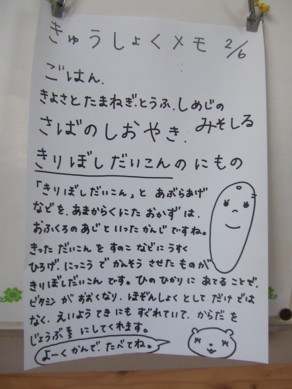 きゅうしょくメモ 2/6
ごはん.
きよさとたまねぎ.とうふ.しめじの
みそしる
さばのしおやき.
きりぼしだいこんのにもの
「きりぼしだいこん」と あぶらあげ
などを.あまからくにた おかずは.
おふくろのあじといったかんじですね。
きった だいこんを すのこなどにうすく
ひろげ.にっこうでかんそうさせたものが
きりぼしだいこんです。ひのひかりにあてることで.
ビタミンがおおくなり.ほぞんしょくとしてだけでは
なく.えいようてきにもすぐれていて.からだを
じょうぶにしてくれます。
よーくかんで.たべてね。